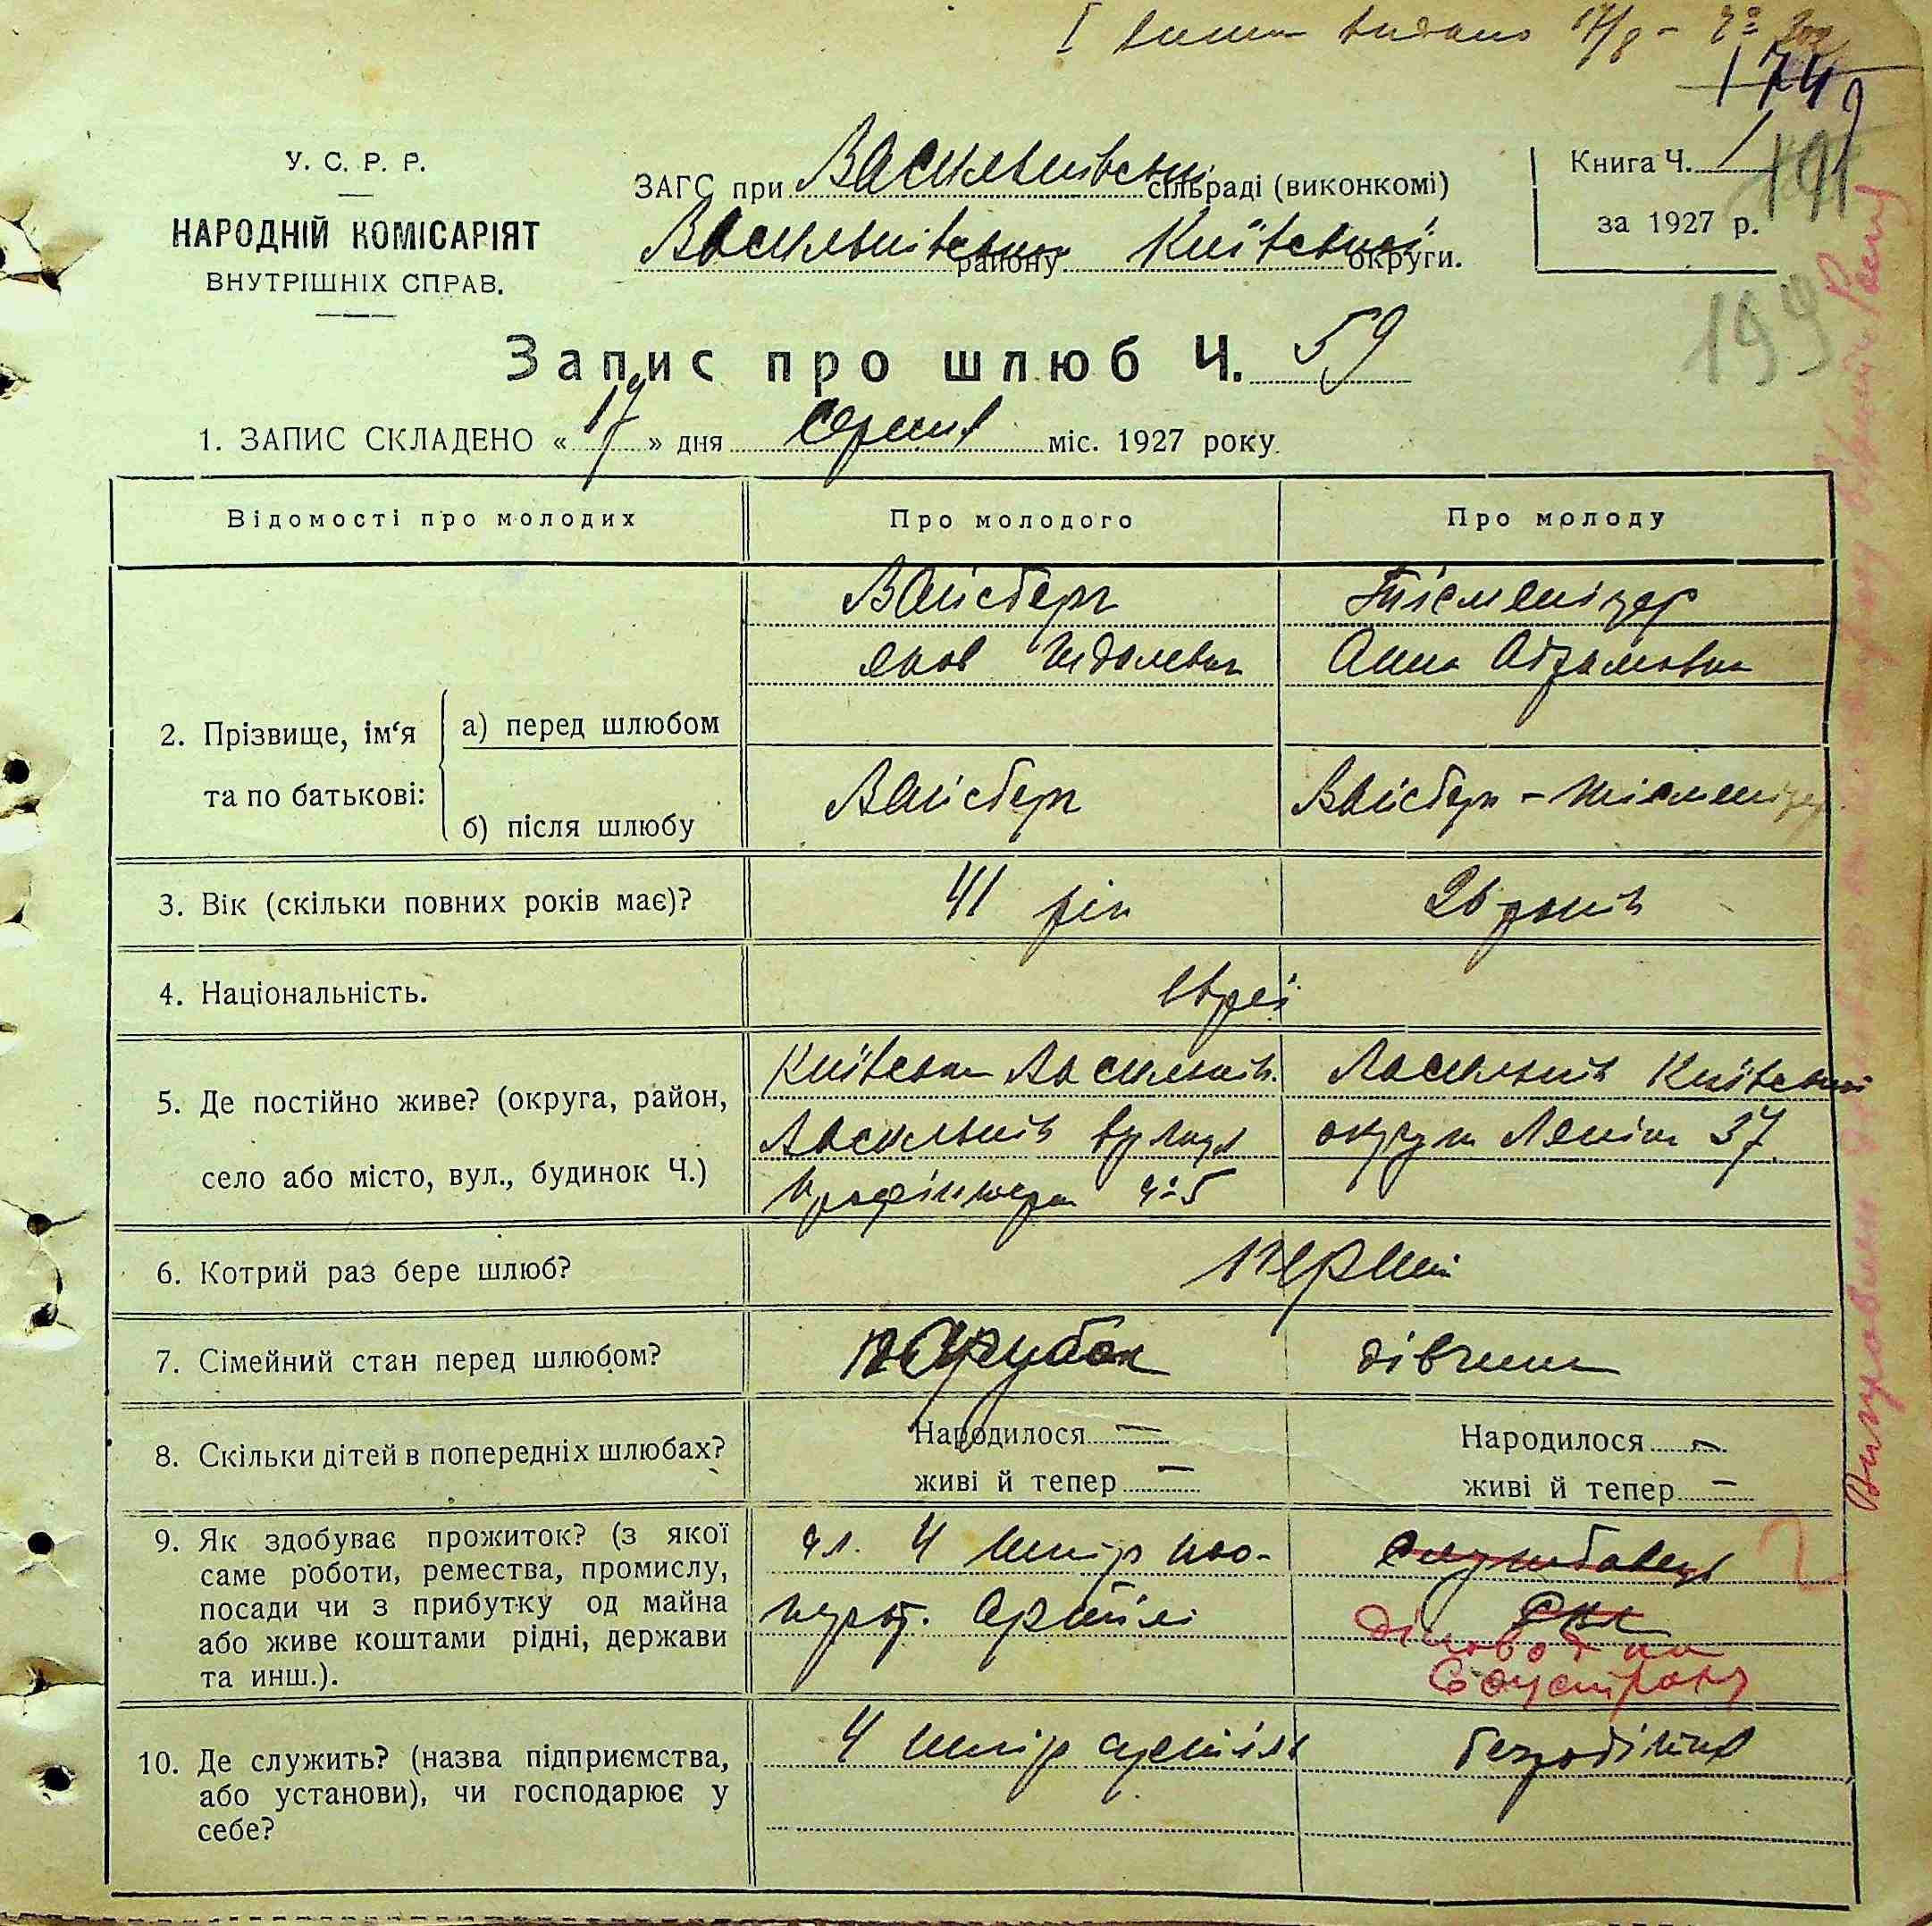 видано 17/8
174
У. С. Р. Р.
НАРОДНІЙ КОМІСАРІЯТ
ВНУТРІШНІХ СПРАВ.
ЗАГС при Васильківськ сільраді (виконкомі)
Васильківськ району Київської округи.
Книга Ч. 1
за 1927 р.
191
199
Запис про шлюб Ч. 59
1. ЗАПИС СКЛАДЕНО « 17 » дня серпня міс. 1927 року.
Відомості про молодих
Про молодого
Про молоду
2. Прізвище, ім‘я та по батькові:
а) перед шлюбом
Вайсберг
Яков
Анна Абрамовна
б) після шлюбу
Вайсберг
Вайсберг -
3. Вік (скільки повних років має)?
41 рік
26 років
4. Національність.
євреї
5. Де постійно живе? (округа, район,
село або місто, вул., будинок Ч.)
Київськ Васильків.
Васильків вулиця
ч. 5
Васильків Київської
округи Леніна 37
6. Котрий раз бере шлюб?
перший
7. Сімейний стан перед шлюбом?
парубок
дівчина
8. Скільки дітей в попередніх шлюбах?
Народилося —
живі й тепер —
Народилося —
живі й тепер —
9. Як здобуває прожиток? (з якої
саме роботи, ремества, промислу,
посади чи з прибутку од майна
або живе коштами рідні, держави
та инш.).
чл. 4 шкір коо-
перат. Артілі
службовець
10. Де служить? (назва підприємства,
або установи), чи господарює у
себе?
4 шкір артіль
безробітня